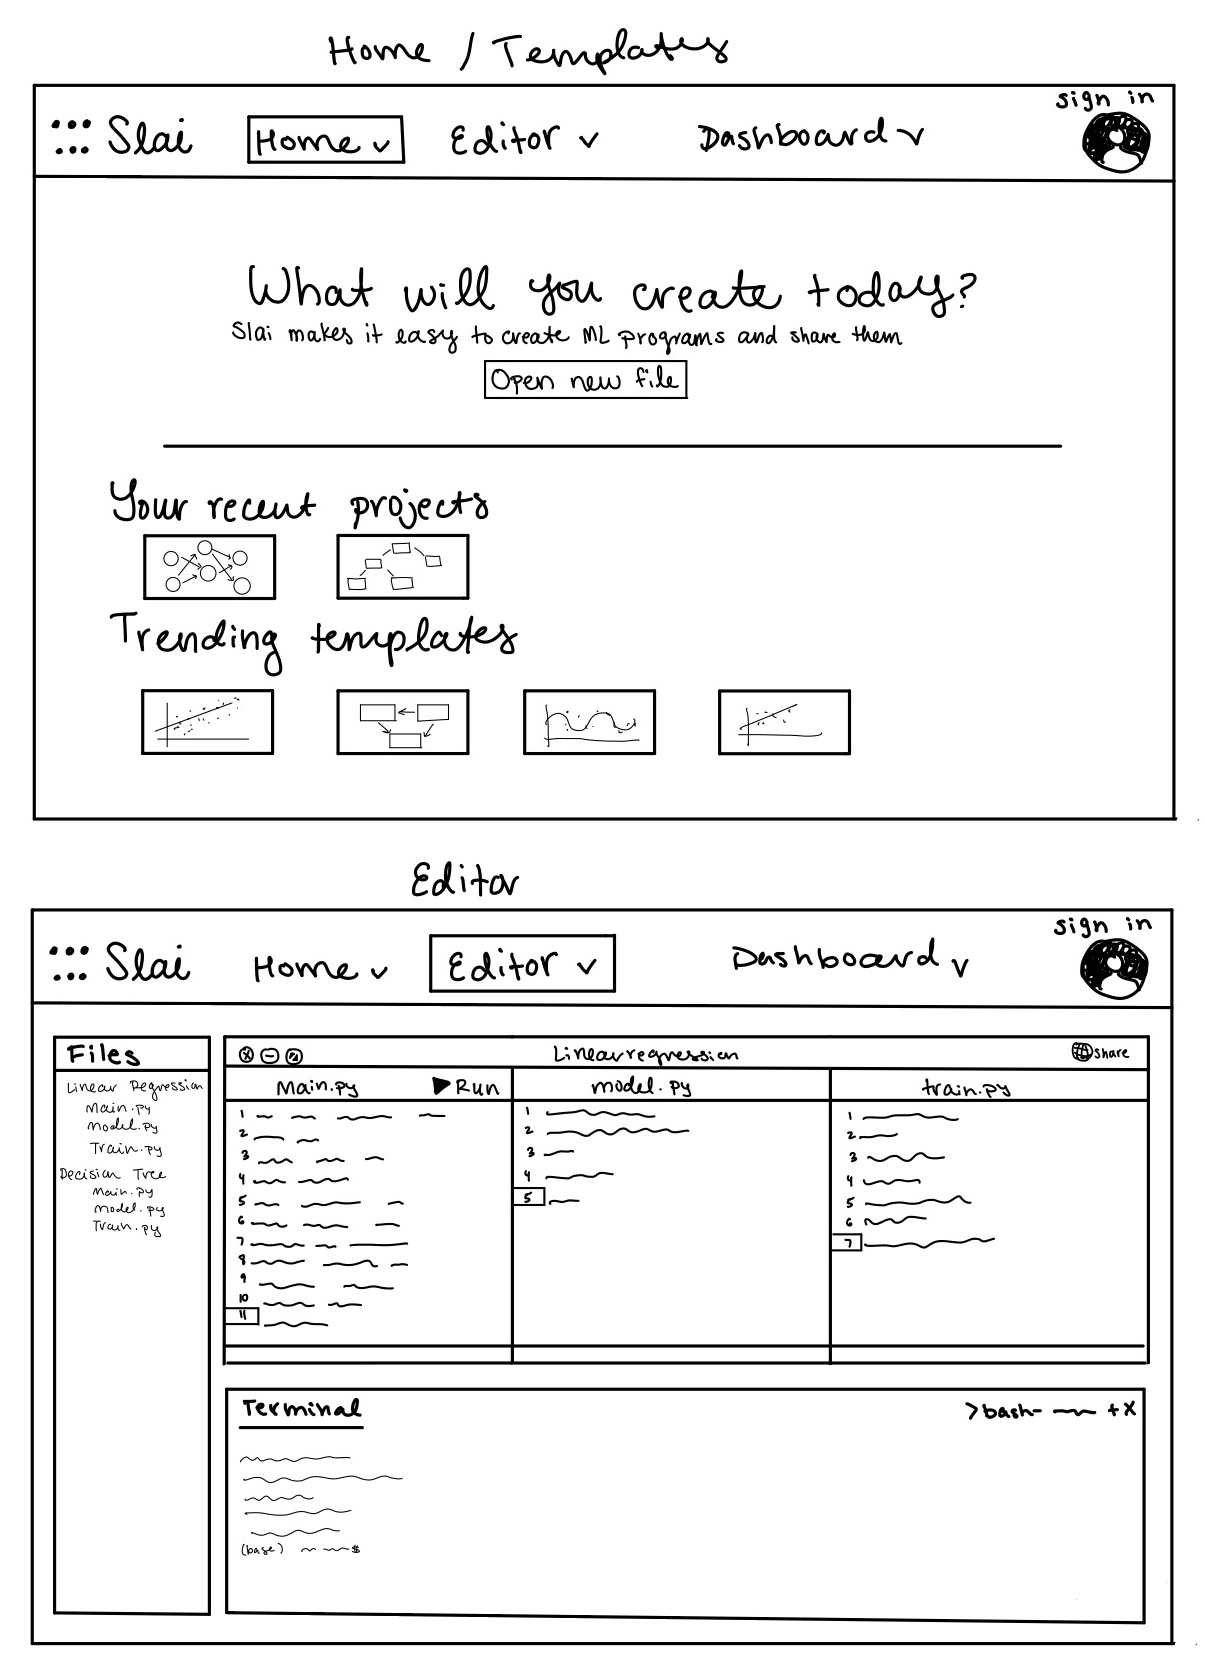 Home / Templates
sign in
Slai Home Editor Dashboard
What will you create today?
Slai makes it easy to create ML programs and share them
Open new file
Your recent projects
Trending templates
Editor
sign in
Slai Home Editor Dashboard
Files
Linear Regression
Main.py
Model.py
Train.py
Decision Tree
Main.py
Model.py
Train.py
Linear regression
share
Main.py Run
1
2
3
4
5
6
7
8
9
10
11
model.py
1
2
3
4
5
train.py
1
2
3
4
5
6
7
Terminal
>bash- + X
(base) $